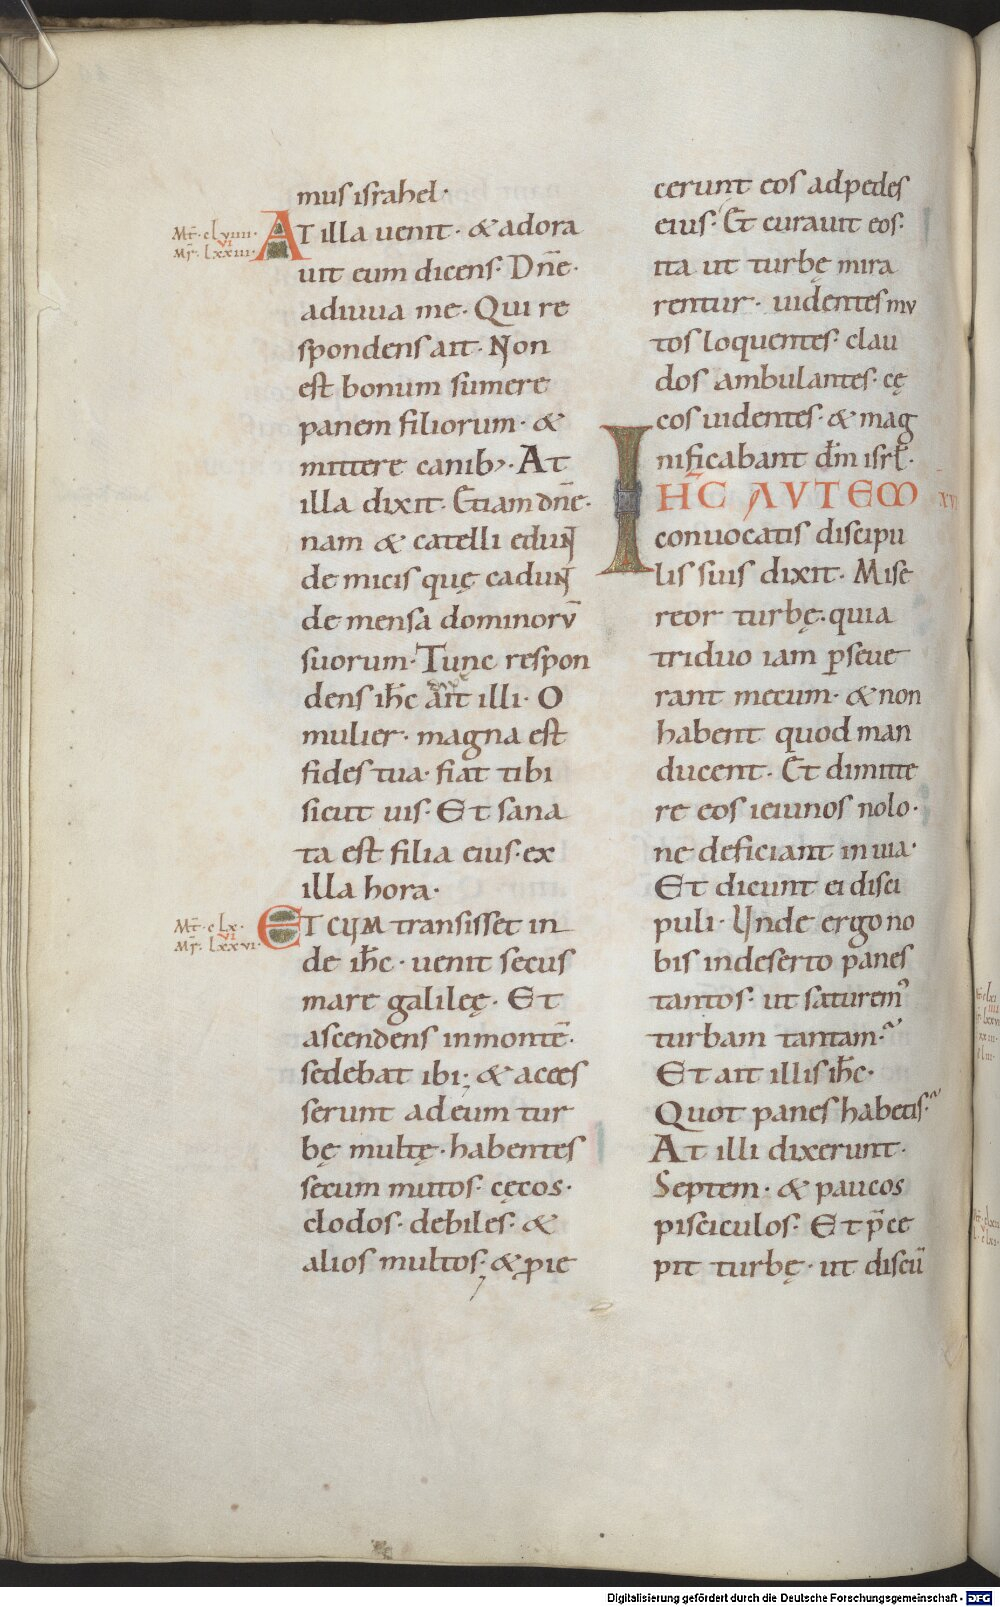 mus israhel·
Mt̄· clviiii·
vi
Mr̄· Lxxiii·
AT illa uenit· & adora
uit eum dicens· Dn̄e·
adiuua me· Qui re
spondens ait· Non
est bonum sumere
panem filiorum· &
mittere canib;· At
illa dixit· Etiam dn̄e·
nam & catelli edunt
de micis quę cadunt
de mensa dominorū
suorum· Tunc respon
dens ih̄c ait illi· O
mulier· magna est
fides tua· fiat tibi
sicut uis· Et sana
ta est filia eius· ex
illa hora·
Mt̄· clx·
vi
Mr̄· Lxxvi·
ET CUM transisset in
de ih̄c· uenit secus
mare galileę· Et
ascendens in montē·
sedebat ibi; & acces
serunt ad eum tur
bę multę· habentes
secum mutos· cęcos·
clodos· debiles· &
alios multos; & ꝓie
cerunt eos ad pedes
eius· Et curauit eos·
ita ut turbę mira
rentur· uidentes mu
tos loquentes· clau
dos ambulantes· cę
cos uidentes· & mag
nificabant dm̄ isrł·
IHC̄ AVTEM
xv
conuocatis discipu
lis suis dixit· Mise
reor turbę· quia
triduo iam ꝑseue
rant mecum· & non
habent quod man
ducent· Et dimitte
re eos ieiunos nolo·
ne deficiant in uia·
Et dicunt ei disci
puli· Unde ergo no
bis in deserto panes
tantos· ut saturem᾽
turbam tantam·
Et ait illis ih̄c·
Quot panes habetis·
At illi dixerunt·
Septem· & paucos
pisciculos· Et p̄ce
pit turbę· ut discū
Digitalisierung gefördert durch die Deutsche Forschungsgemeinschaft - DFG